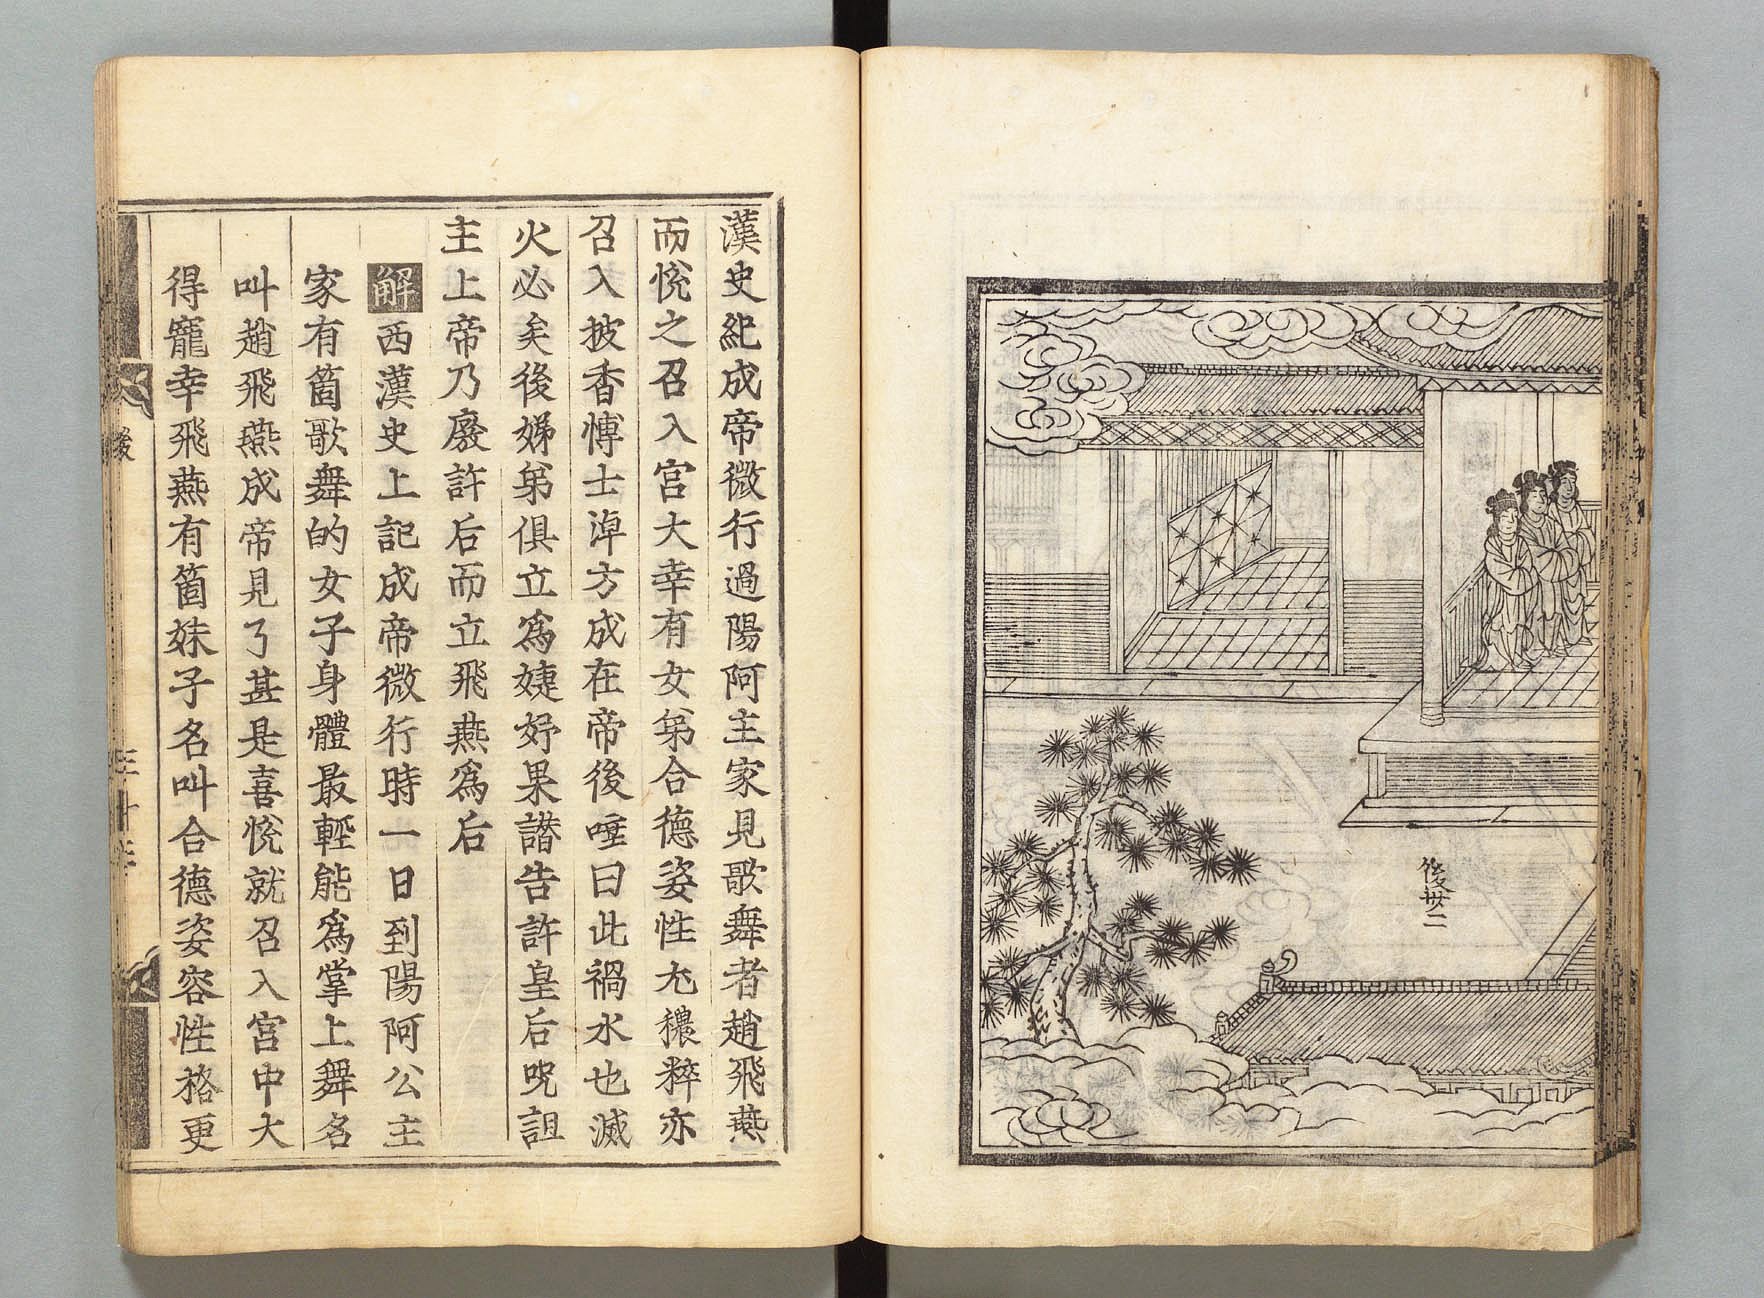 後卅二
漢史紀成帝微行過陽阿主家見歌舞者趙飛燕
而悅之召入宮大幸有女弟合德姿性尤穠粹亦
召入披香博士淖方成在帝後唾曰此禍水也滅
火必矣後姊弟俱立為婕妤果譖告許皇后呪詛
主上帝乃廢許后而立飛燕為后
解西漢史上記成帝微行時一日到陽阿公主
家有箇歌舞的女子身體最輕能為掌上舞名
叫趙飛燕成帝見了甚是喜悅就召入宮中大
得寵幸飛燕有箇妹子名叫合德姿容性格更
後